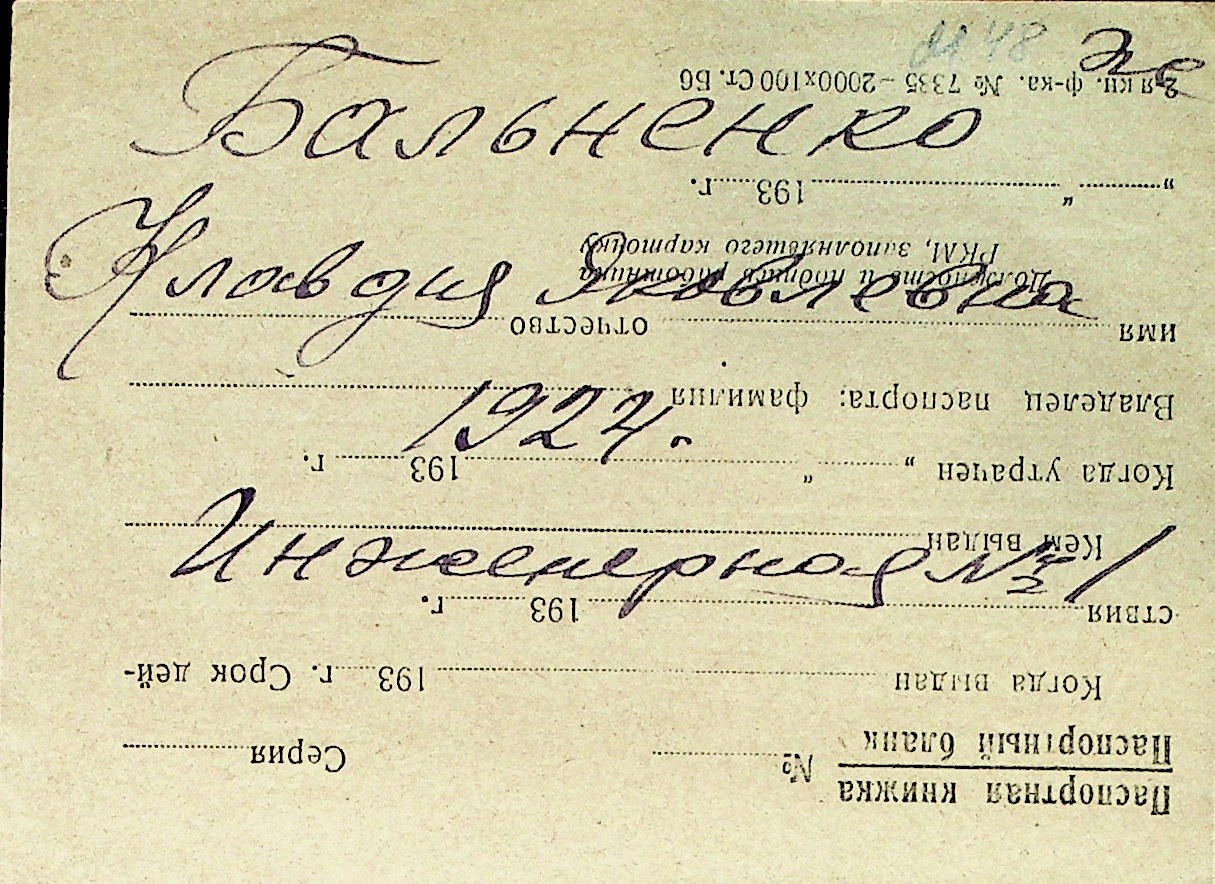 И 48
Бальненко
Клавдия Яковлевна
1924.
Инженерная № 1
Паспортная книжка
Паспортный бланк
№ Серия
Когда выдан 193 г. Срок дей-
ствия 193 г.
Кем выдан
Когда утрачен " " 193 г.
Владелец паспорта: фамилия
имя отчество
Должность и подпись работника
РКМ, заполнявшего картонку
" " 193 г.
2-я кн. ф-ка. № 7335 – 2000х100 Ст. Б6